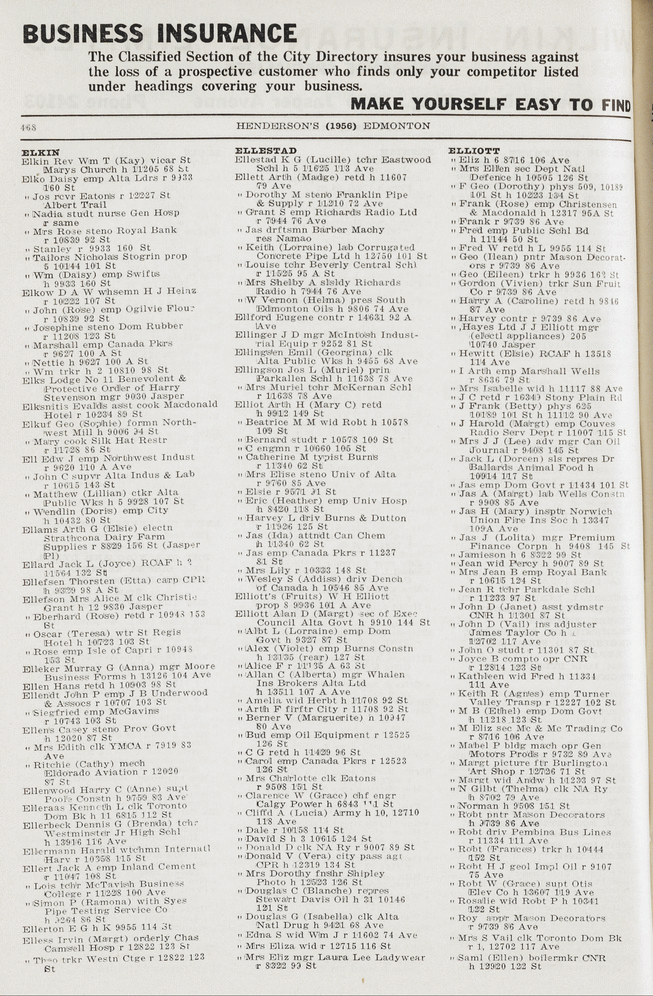 BUSINESS INSURANCE
The Classified Section of the City Directory insures your business against
the loss of a prospective customer who finds only your competitor listed
under headings covering your business.
MAKE YOURSELF EASY TO FIND
468
HENDERSON'S (1956) EDMONTON
ELKIN
Elkin Rev Wm T (Kay) vicar St
Marys Church h 11205 68 St
Elko Daisy emp Alta Ldrs r 9933
160 St
" Jos rcvr Eatons r 12227 St
Albert Trail
" Nadia studt nurse Gen Hosp
r same
" Mrs Rose steno Royal Bank
r 10839 92 St
" Stanley r 9933 160 St
" Tailors Nicholas Stogrin prop
5 10144 101 St
" Wm (Daisy) emp Swifts
h 9933 160 St
Elkow D A W whsemn H J Heinz
r 10222 107 St
" John (Rose) emp Ogilvie Flour
r 10839 92 St
" Josephine steno Dom Rubber
r 11208 123 St
" Marshall emp Canada Pkrs
r 9627 100 A St
" Nettie h 9627 100 A St
" Wm trkr h 2 10810 98 St
Elks Lodge No 11 Benevolent &
Protective Order of Harry
Stevenson mgr 9030 Jasper
Elksnitis Evalds asst cook Macdonald
Hotel r 10234 89 St
Elkuf Geo (Sophie) formn North-
west Mill h 9006 94 St
" Mary cook Silk Hat Restr
r 11728 86 St
Ell Edw J emp Northwest Indust
r 9620 110 A Ave
" John C supvr Alta Indus & Lab
r 10615 143 St
" Matthew (Lillian) ctkr Alta
Public Wks h 5 9928 107 St
" Wendlin (Doris) emp City
h 10432 80 St
Ellams Arth G (Elsie) electn
Strathcona Dairy Farm
Supplies r 8829 156 St (Jasper
Pl)
Ellard Jack L (Joyce) RCAF h
11564 132 St
Ellefsen Thorsten (Etta) carp CPR
h 9329 98 A St
Ellefson Mrs Alice M clk Christie
Grant h 12 9830 Jasper
" Eberhard (Rose) retd r 10948 153
St
" Oscar (Teresa) wtr St Regis
Hotel h 10723 103 St
" Rose emp Isle of Capri r 10948
153 St
Elleker Murray G (Anna) mgr Moore
Business Forms h 13126 104 Ave
Ellen Hans retd h 10903 98 St
Ellendt John P emp J B Underwood
& Assocs r 10707 103 St
" Siegfried emp McGavins
r 10743 103 St
Ellens Casey steno Prov Govt
h 12020 87 St
" Mrs Edith clk YMCA r 7919 83
Ave
" Ritchie (Cathy) mech
Eldorado Aviation r 12020
87 St
Ellenwood Harry C (Anne) supt
Poole Constn h 9759 83 Ave
Elleraas Kenneth L clk Toronto
Dom Bk h 11 6815 112 St
Ellerbeck Dennis G (Brenda) tchr
Westminster Jr High Schl
h 13916 116 Ave
Ellermann Harald wtchmn Internatl
Harv r 10358 115 St
Ellert Jack A emp Inland Cement
r 11047 108 St
" Lois tchr McTavish Business
College r 11228 100 Ave
" Simon P (Ramona) with Syes
Pipe Testing Service Co
86 St
Ellerton E G h K 9955 114 St
Elless Irvin (Margt) orderly Chas
Camsell Hosp r 12822 123 St
" Theo trkr Westn Ctge r 12822 123
St
ELLESTAD
Ellestad K G (Lucille) tchr Eastwood
Schl h 5 11625 113 Ave
Ellett Arth (Madge) retd h 11607
79 Ave
" Dorothy M steno Franklin Pipe
& Supply r 11210 72 Ave
" Grant S emp Richards Radio Ltd
r 7944 76 Ave
" Jas drftsmn Barber Machy
res Namao
" Keith (Lorraine) lab Corrugated
Concrete Pipe Ltd h 12750 101 St
" Louise tchr Beverly Central Schl
r 11525 95 A St
" Mrs Shelby A slsldy Richards
Radio h 7944 76 Ave
" W Vernon (Helma) pres South
Edmonton Oils h 9806 74 Ave
Ellford Eugene contr r 14631 92 A
Ave
Ellinger J D mgr McIntosh Indust-
rial Equip r 9252 81 St
Ellingsen Emil (Georgina) clk
Alta Public Wks h 9455 68 Ave
Ellingson Jos L (Muriel) prin
Parkallen Schl h 11638 78 Ave
" Mrs Muriel tchr McKernan Schl
r 11638 78 Ave
Elliot Arth H (Mary C) retd
h 9912 149 St
" Beatrice M M wid Robt h 10578
109 St
" Bernard studt r 10578 109 St
" C engmn r 10660 105 St
" Catherine M typist Burns
r 11340 62 St
" Mrs Elise steno Univ of Alta
r 9760 85 Ave
" Elsie r 9571 91 St
" Eric (Heather) emp Univ Hosp
h 8420 118 St
" Harvey L driv Burns & Dutton
r 11926 125 St
" Jas (Ida) attndt Can Chem
h 11340 62 St
" Jas emp Canada Pkrs r 11237
81 St
" Mrs Lily r 10333 148 St
" Wesley S (Addiss) driv Dench
of Canada h 10546 85 Ave
Elliot's (Fruits) W H Elliott
prop 8 9936 101 A Ave
Elliott Alan D (Margt) sec of Exec
Council Alta Govt h 9910 144 St
" Albt L (Lorraine) emp Dom
Govt h 9327 87 St
" Alex (Violet) emp Burns Constn
h 13135 (rear) 127 St
" Alice F r 11135 A 63 St
" Allan C (Alberta) mgr Whalen
Ins Brokers Alta Ltd
h 13511 107 A Ave
" Amelia wid Herbt h 11708 92 St
" Arth F firftr City r 11708 92 St
" Berner V (Marguerite) n 10947
80 Ave
" Bud emp Oil Equipment r 12525
126 St
" C G retd h 11429 96 St
" Carol emp Canada Pkrs r 12523
126 St
" Mrs Charlotte clk Eatons
r 9508 151 St
" Clarence W (Grace) chf engr
Calgy Power h 6843 111 St
" Cliffd A (Lucia) Army h 10, 12710
118 Ave
" Dale r 10158 114 St
" David S h 3 10615 124 St
" Donald D clk NA Ry r 9007 89 St
" Donald V (Vera) city pass agt
CPR h 12319 134 St
" Mrs Dorothy fnshr Shipley
Photo h 12523 126 St
" Douglas C (Blanche) repres
Stewart Davis Oil h 31 10146
121 St
" Douglas G (Isabella) clk Alta
Natl Drug h 9421 68 Ave
" Edna S wid Wm J r 11602 74 Ave
" Mrs Eliza wid r 12715 116 St
" Mrs Eliz mgr Laura Lee Ladywear
r 8322 99 St
ELLIOTT
" Eliz h 6 8716 106 Ave
" Mrs Ellen sec Dept Natl
Defence h 10505 126 St
" F Geo (Dorothy) phys 509, 10189
101 St h 10223 134 St
" Frank (Rose) emp Christensen
& Macdonald h 12317 95A St
" Frank r 9739 86 Ave
" Fred emp Public Schl Bd
h 11144 50 St
" Fred W retd h L 9955 114 St
" Geo (Ilean) pntr Mason Decorat-
ors r 9739 86 Ave
" Geo (Eileen) trkr h 9936 162 St
" Gordon (Vivien) trkr Sun Fruit
Co r 9739 86 Ave
" Harry A (Caroline) retd h 9816
87 Ave
" Harvey contr r 9739 86 Ave
" Hayes Ltd J J Elliott mgr
(electl appliances) 205
10740 Jasper
" Hewitt (Elsie) RCAF h 13518
114 Ave
" I Arth emp Marshall Wells
r 8636 79 St
" Mrs Isabelle wid h 11117 88 Ave
" J C retd r 16340 Stony Plain Rd
" J Frank (Betty) phys 625
10189 101 St h 11112 90 Ave
" J Harold (Margt) emp Couves
Radio Serv Dept r 11007 115 St
" Mrs J J (Lee) adv mgr Can Oil
Journal r 9408 145 St
" Jack L (Doreen) sls repres Dr
Ballards Animal Food h
10914 117 St
" Jas emp Dom Govt r 11434 101 St
" Jas A (Margt) lab Wells Constn
r 9908 85 Ave
" Jas H (Mary) insptr Norwich
Union Fire Ins Soc h 13347
109A Ave
" Jas J (Lolita) mgr Premium
Finance Corpn h 9408 145 St
" Jamieson h 6 8322 99 St
" Jean wid Percy h 9007 89 St
" Mrs Jean B emp Royal Bank
r 10615 124 St
" Jean R tchr Parkdale Schl
r 11233 97 St
" John D (Janet) asst ydmstr
CNR h 11301 87 St
" John D (Vail) ins adjuster
James Taylor Co h
12702 117 Ave
" John O studt r 11301 87 St
" Joyce B compto opr CNR
r 12814 123 St
" Kathleen wid Fred h 11334
111 Ave
" Keith R (Agnes) emp Turner
Valley Transp r 12227 102 St
" M B (Ethel) emp Dom Govt
h 11218 123 St
" M Eliz sec Mc & Mc Trading Co
r 8716 106 Ave
" Mabel P bldg mach opr Gen
Motors Prods r 9732 89 Ave
" Margt picture ftr Burlington
Art Shop r 12726 71 St
" Margt wid Andw h 11233 97 St
" N Gilbt (Thelma) clk NA Ry
h 8702 79 Ave
" Norman h 9508 151 St
" Robt pntr Mason Decorators
h 9739 86 Ave
" Robt driv Pembina Bus Lines
r 11334 111 Ave
" Robt (Frances) trkr h 10444
152 St
" Robt H J geol Impl Oil r 9107
75 Ave
" Robt W (Grace) supt Otis
Elev Co h 13607 119 Ave
" Rosalie wid Robt P h 10341
122 St
" Roy appr Mason Decorators
r 9739 86 Ave
" Mrs S Vail clk Toronto Dom Bk
r 1, 12702 117 Ave
" Saml (Ellen) boilermkr CNR
h 12920 122 St